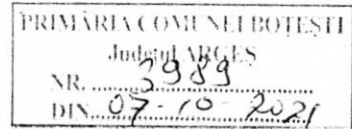 PRIMĂRIA COMUNEI BOTEȘTI
Județul ARGEȘ
NR. 3989
DIN. 07-10-2021